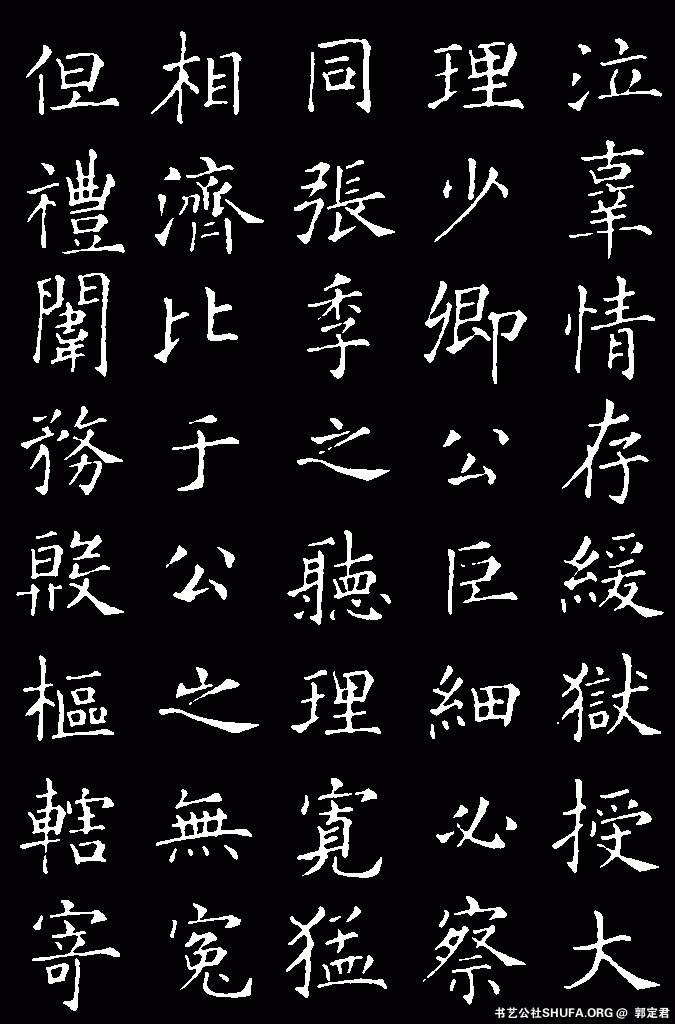 泣辜情存緩獄授大
理少卿公巨細必察
同張季之聽理寬猛
相濟比于公之無冤
但禮闈務殷樞轄寄
书艺公社SHUFA.ORG @ 郭定君